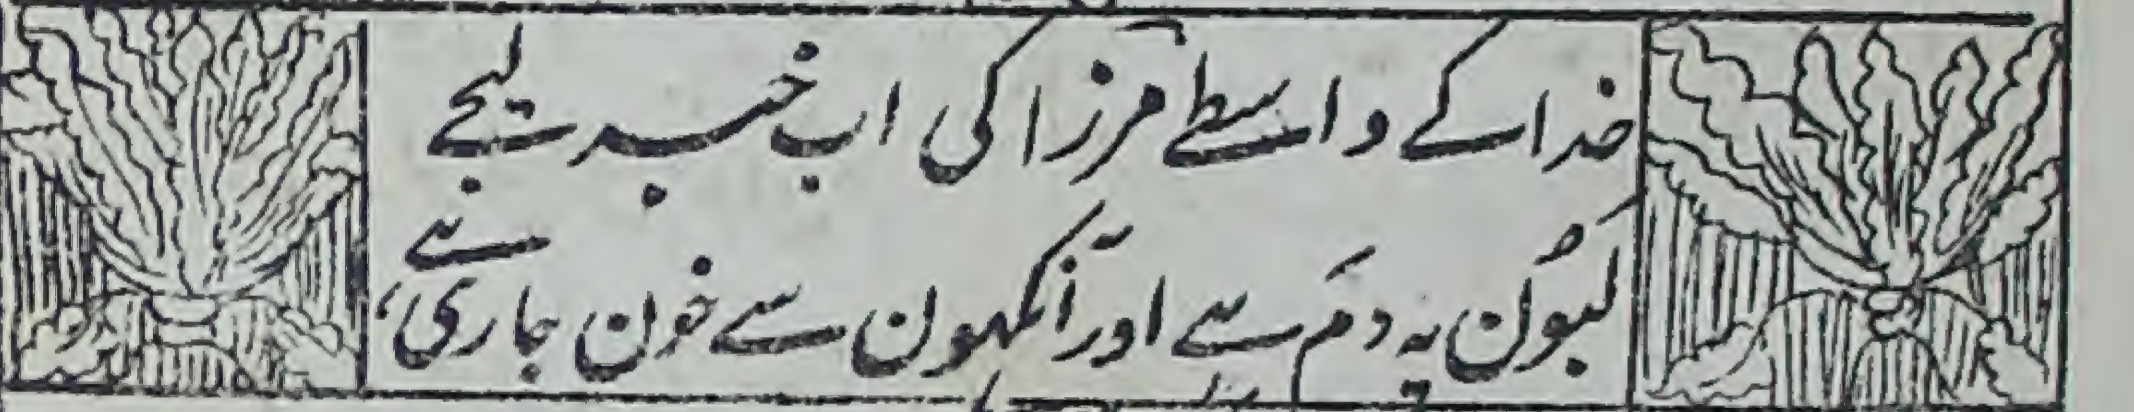 خدا کے واسطے مرزا کی اب خبر لیجے
لبوں پہ دم ہے اور آنکھوں سے خون جاری ہے